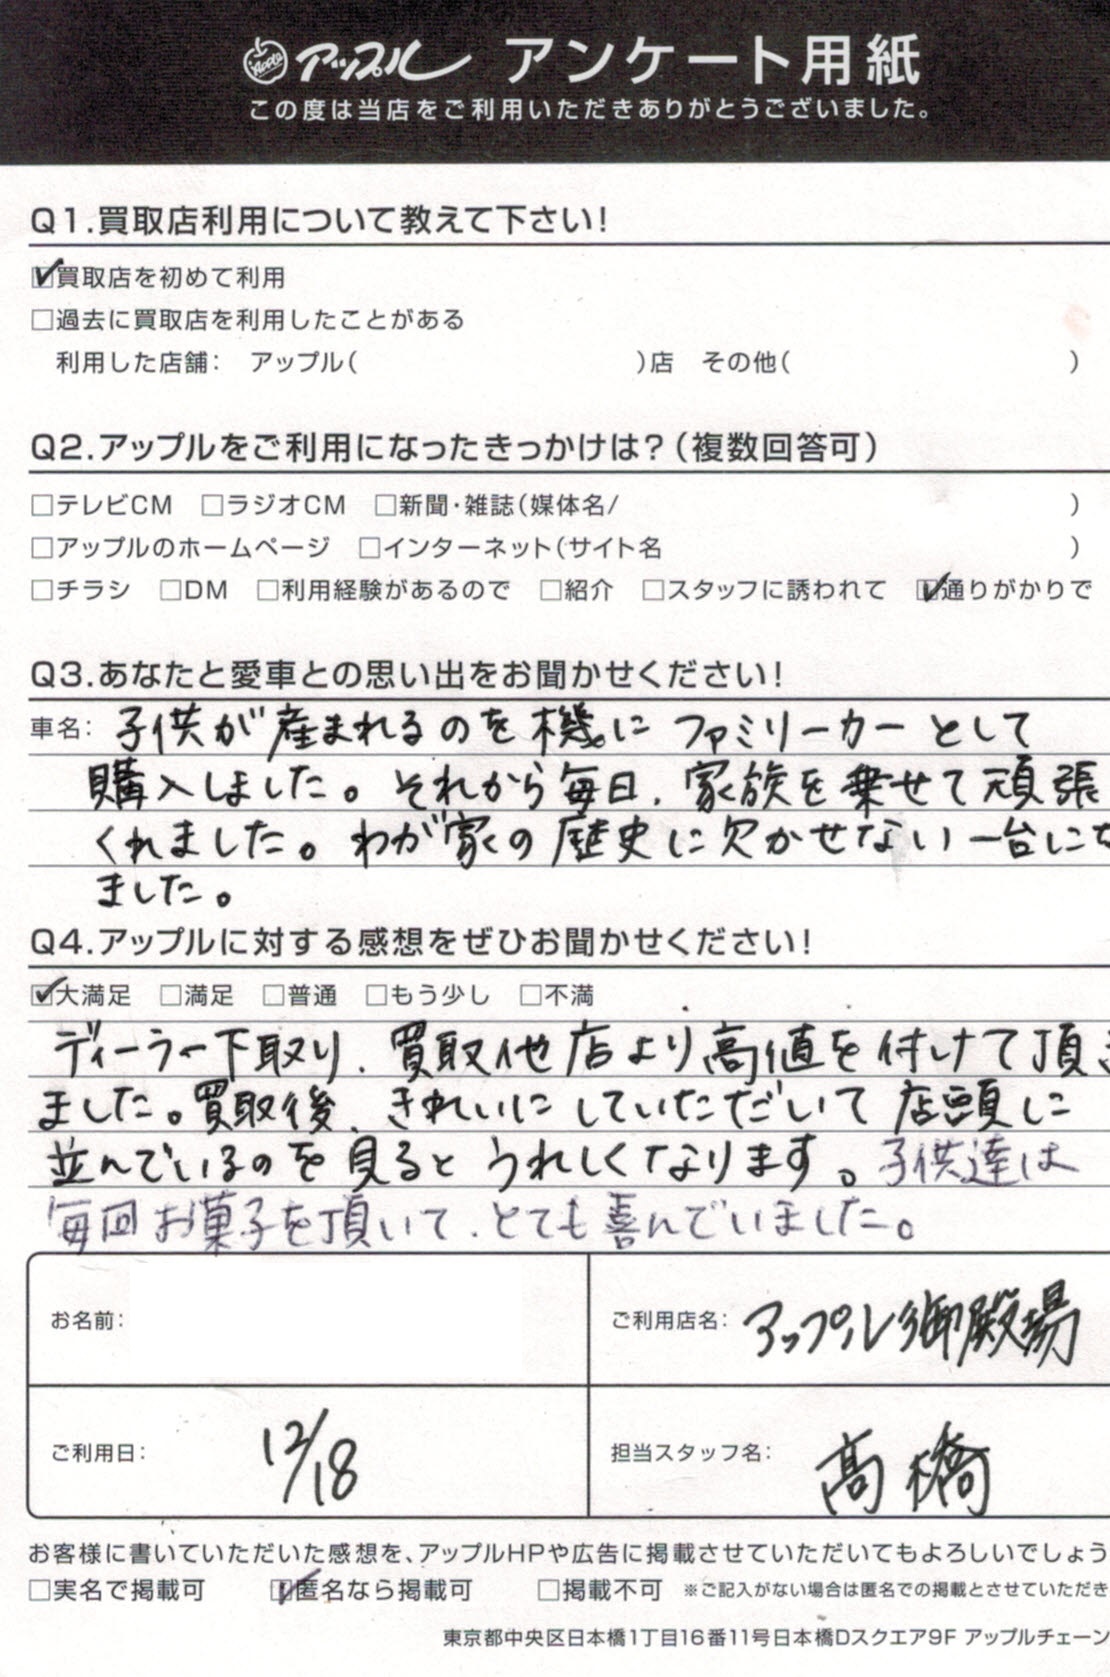 Apple アップル アンケート用紙
この度は当店をご利用いただきありがとうございました。
Q1.買取店利用について教えて下さい!
☑買取店を初めて利用
□過去に買取店を利用したことがある
利用した店舗: アップル( )店 その他( )
Q2.アップルをご利用になったきっかけは?(複数回答可)
□テレビCM □ラジオCM □新聞・雑誌(媒体名/ )
□アップルのホームページ □インターネット(サイト名 )
□チラシ □DM □利用経験があるので □紹介 □スタッフに誘われて ☑通りがかりで
Q3.あなたと愛車との思い出をお聞かせください!
車名: 子供が産まれるのを機に ファミリーカーとして
購入しました。それから毎日、家族を乗せて頑張
くれました。わが家の歴史に欠かせない一台に
ました。
Q4.アップルに対する感想をぜひお聞かせください!
☑大満足 □満足 □普通 □もう少し □不満
ディーラー下取り、買取他店より高値を付けて頂き
ました。買取後、きれいにしていただいて店頭に
並んでいるのを見るとうれしくなります。子供達は
毎回お菓子を頂いて、とても喜んでいました。
お名前:
ご利用店名: アップル御殿場
ご利用日: 12/18
担当スタッフ名: 髙橋
お客様に書いていただいた感想を、アップルHPや広告に掲載させていただいてもよろしいでしょう
□実名で掲載可 ☑匿名なら掲載可 □掲載不可 ※ご記入がない場合は匿名での掲載とさせていただき
東京都中央区日本橋1丁目16番11号日本橋Dスクエア9F アップルチェーン